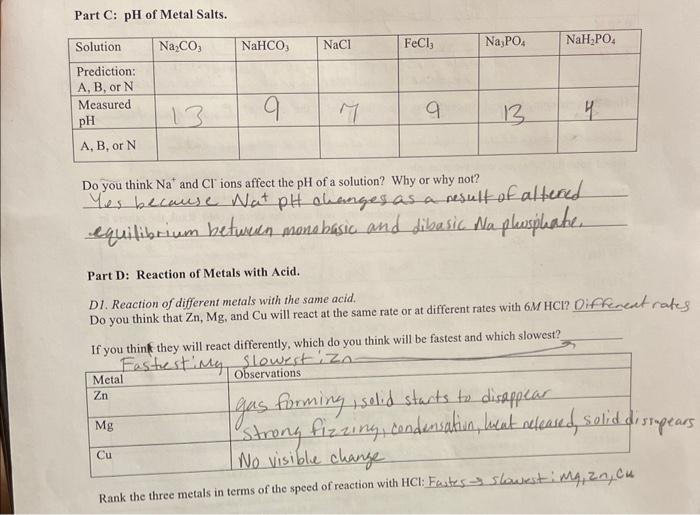 Part C: pH of Metal Salts.
Solution Na₂CO₃ NaHCO₃ NaCl FeCl₃ Na₃PO₄ NaH₂PO₄
Prediction:
A, B, or N
Measured
pH 13 9 7 9 13 4
A, B, or N
Do you think Na⁺ and Cl⁻ ions affect the pH of a solution? Why or why not?
Yes because Na+ pH changes as a result of altered
equilibrium between monobasic and dibasic Na phosphate.
Part D: Reaction of Metals with Acid.
D1. Reaction of different metals with the same acid.
Do you think that Zn, Mg, and Cu will react at the same rate or at different rates with 6M HCl? Different rates
If you think they will react differently, which do you think will be fastest and which slowest?
Fastest: Mg Slowest: Zn
Metal Observations
Zn gas forming, solid starts to disappear
Mg strong fizzing, condensation, heat released, solid dissapears
Cu No visible change
Rank the three metals in terms of the speed of reaction with HCl: Fastes → slowest: Mg, Zn, Cu